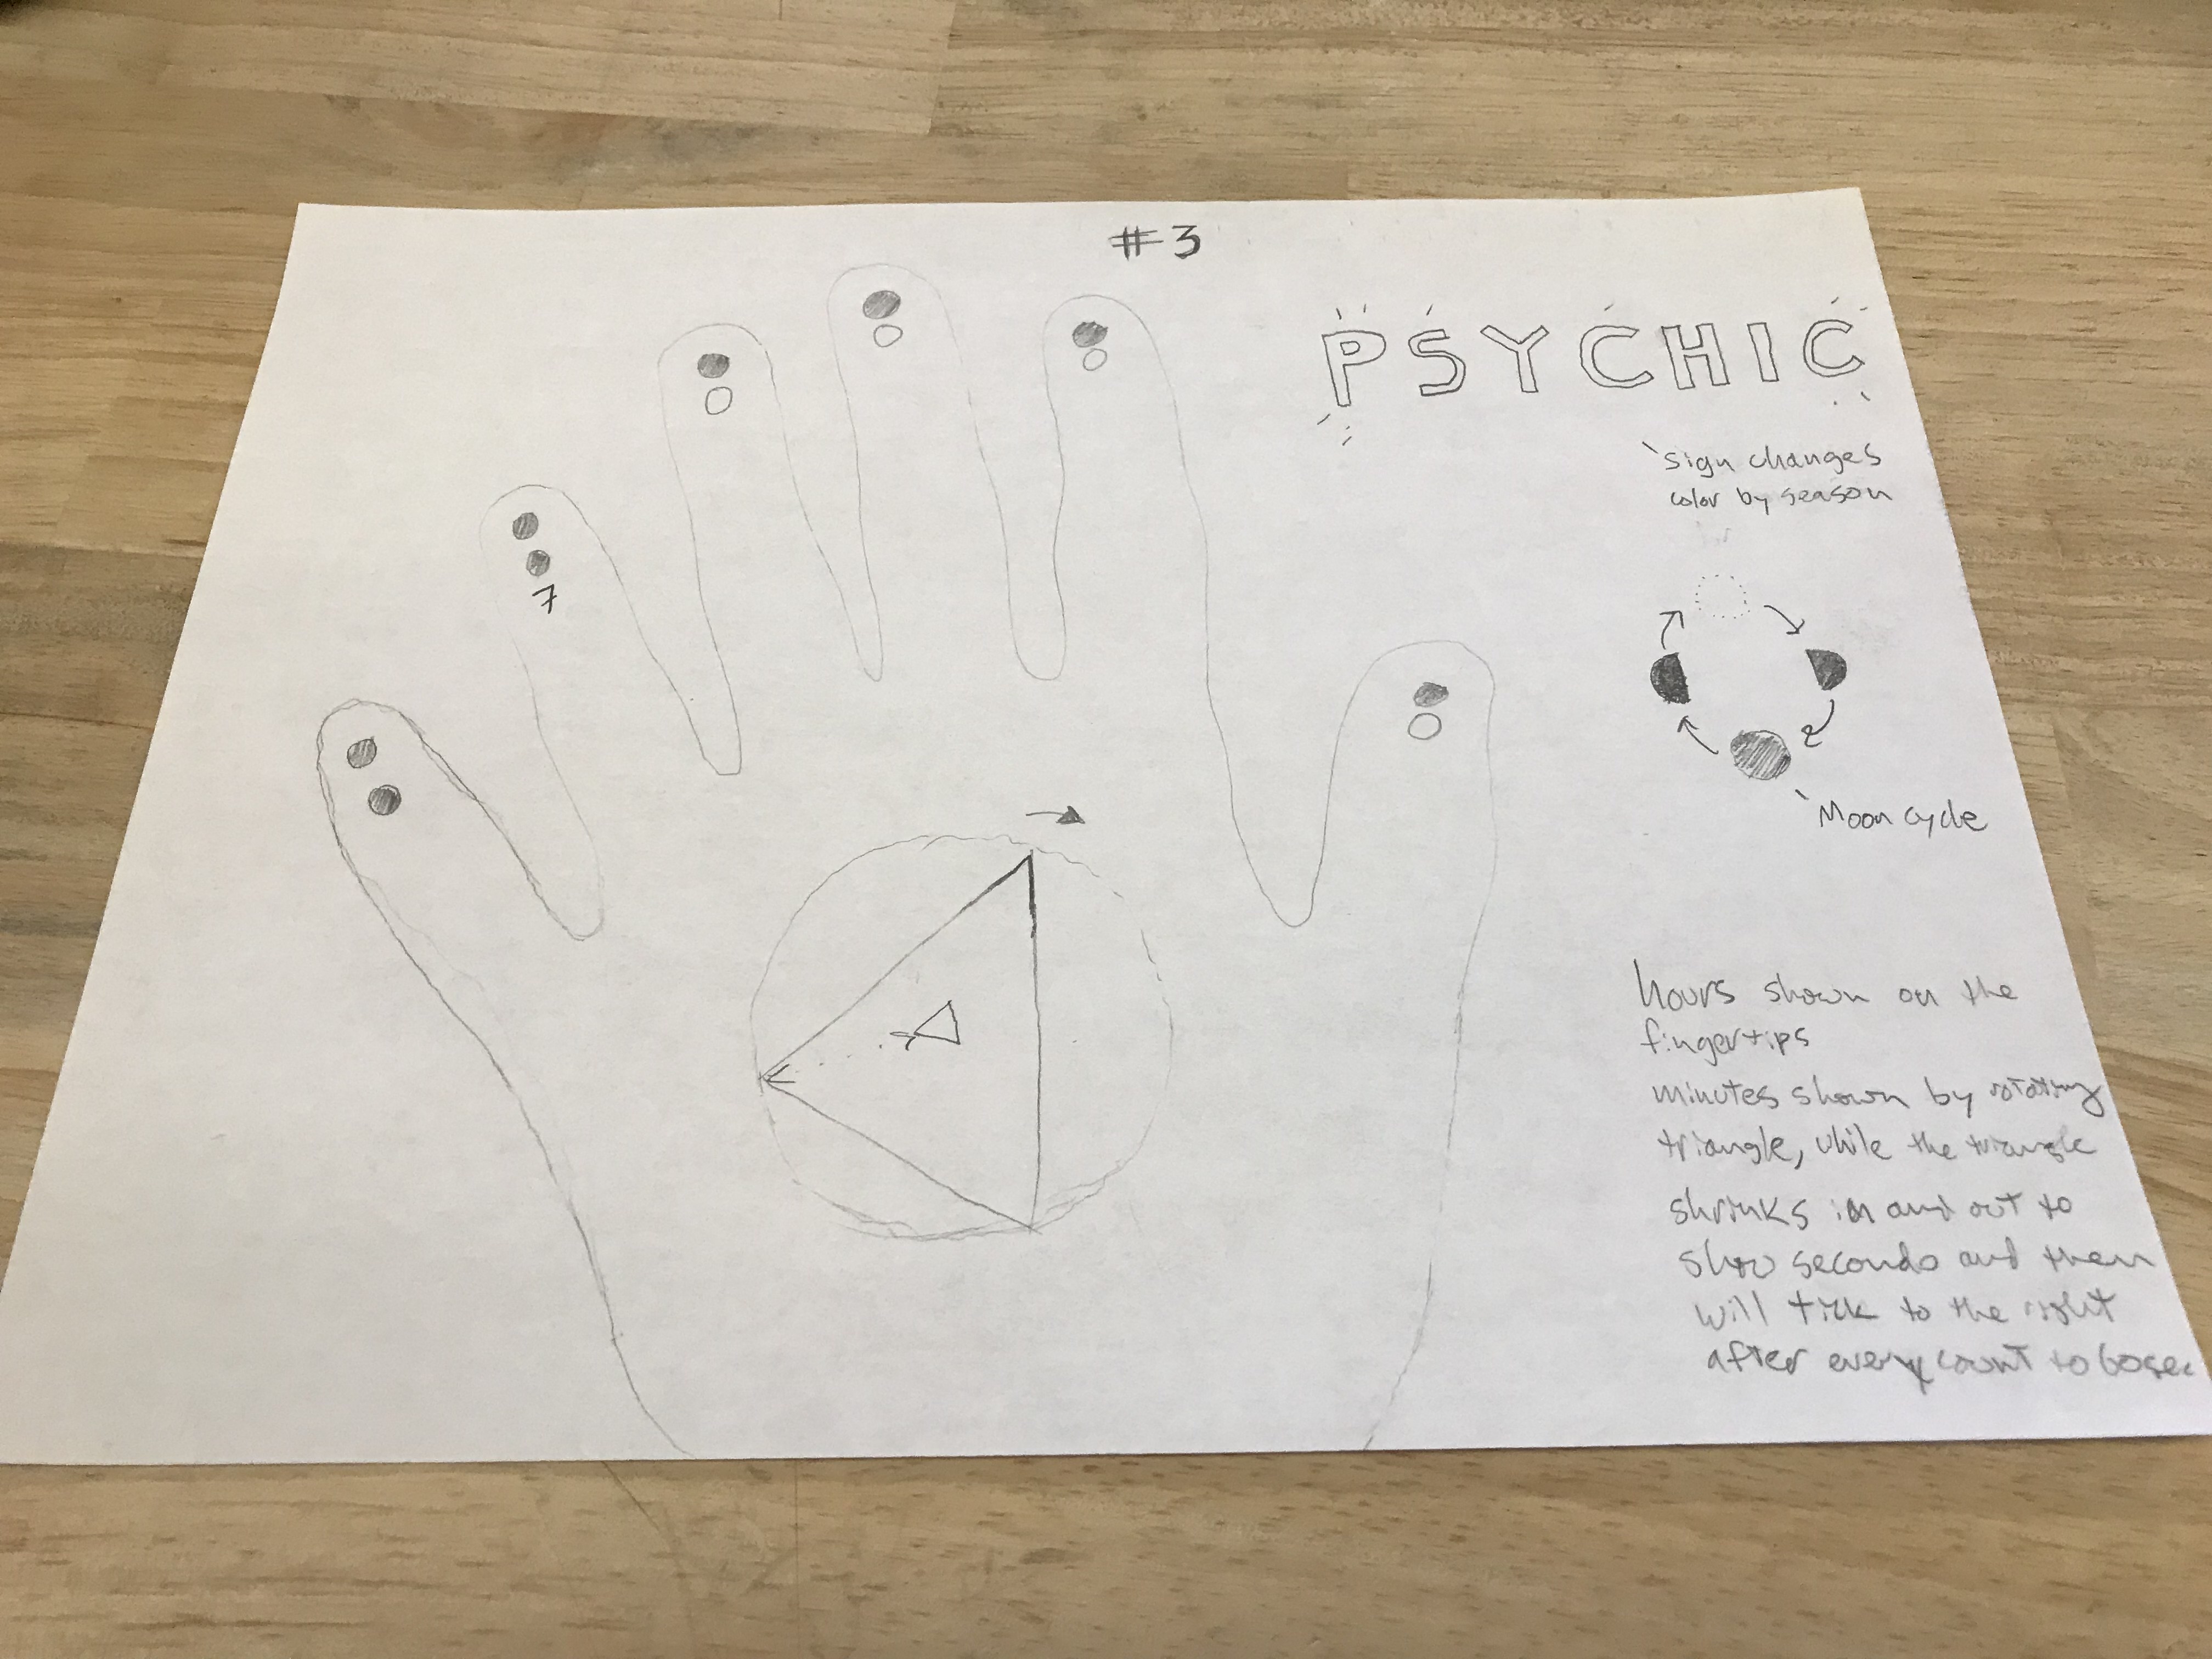 #3
PSYCHIC
sign changes
color by season
7
Moon cycle
hours shown on the
fingertips
minutes shown by rotating
triangle, while the triangle
shrinks in and out to
show seconds and then
will tick to the right
after every count to 60sec